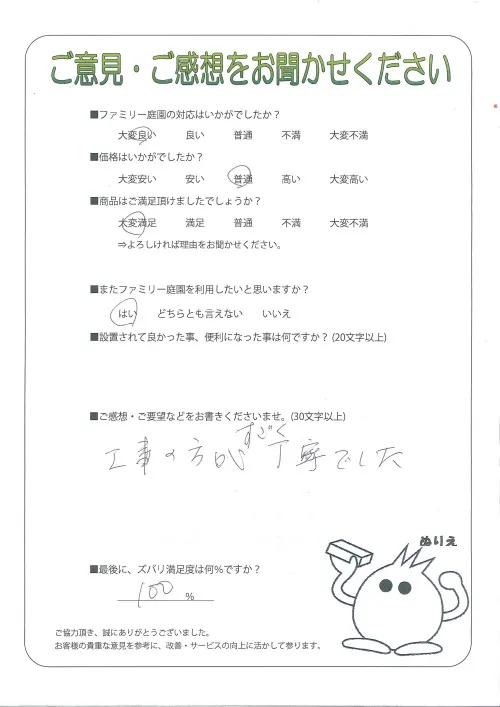 ご意見・ご感想をお聞かせください
■ファミリー庭園の対応はいかがでしたか？
大変良い 良い 普通 不満 大変不満
■価格はいかがでしたか？
大変安い 安い 普通 高い 大変高い
■商品はご満足頂けましたでしょうか？
大変満足 満足 普通 不満 大変不満
⇒よろしければ理由をお聞かせください。
■またファミリー庭園を利用したいと思いますか？
はい どちらとも言えない いいえ
■設置されて良かった事、便利になった事は何ですか？(20文字以上)
■ご感想・ご要望などをお書きくださいませ。(30文字以上)
すごく
工事の方が丁寧でした
ぬりえ
■最後に、ズバリ満足度は何％ですか？
100 %
ご協力頂き、誠にありがとうございました。
お客様の貴重な意見を参考に、改善・サービスの向上に活かして参ります。